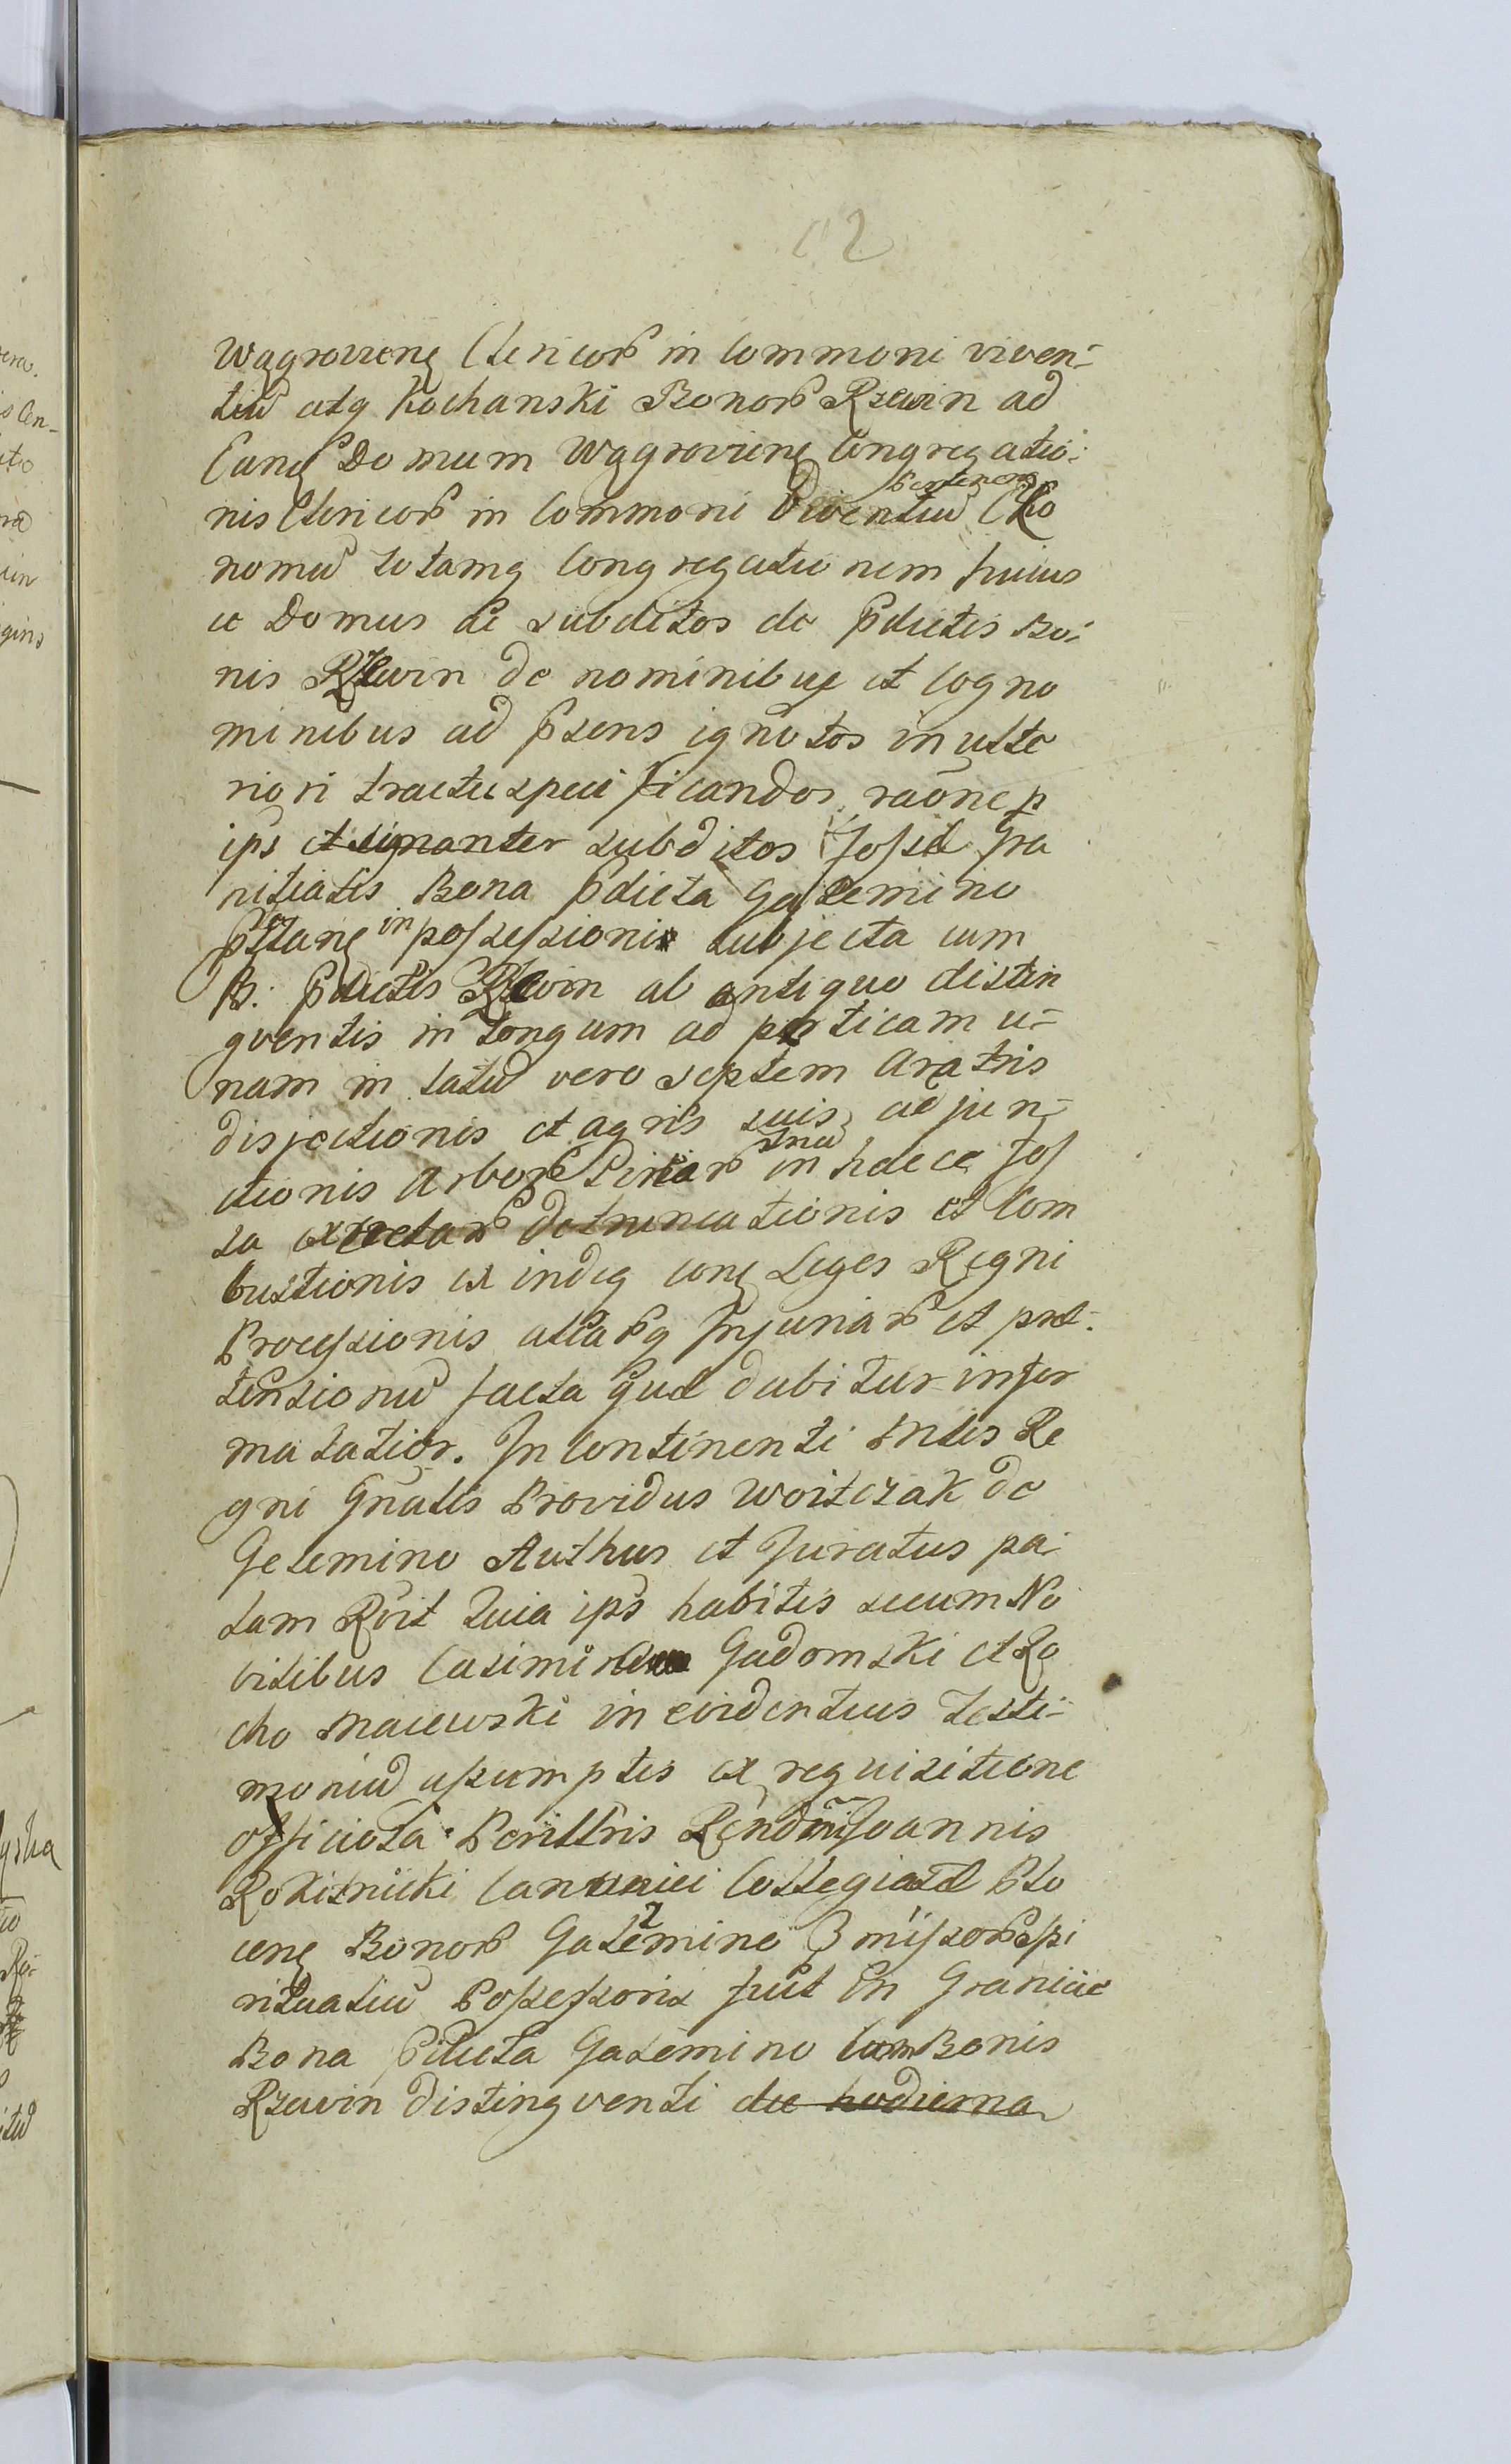 02
Wągroviens Clericorb in Commoni viven-
tiu atq Kochanski Bonorb Rzewin ad
Eans Domum Wągroviens Congregatio-
nis Clericorb in Commoni Viventiu Oeko
pertenens
nomu totamq Congregationem huius
ce Domus ac subditos de pdictis Bo-
nis Rzewin de nominibus et Cogno
minibus ad psens ignotos in ulte
riori tractu specificandos, raone p
ips et signanter subditos Fossæ Gra
nitialis Bona pdicta Galemino
in possessioni subjecta cum
B: pdictis Rzewin ab antiquo distin
gventis in longum ad perticam u-
nam in latu vero septem aratris
disjectionis et agris suis adjun-
ctionis Arborb Piniarb in hacce Fos
sa detruncationis et Com
bustionis ex indeq cons Leges Regni
Processionis aliarbq Injuriarb et præ-
tensionu facta quæ dabitur infor
ma latior. In Continenti Mlis Re
gni Gnalis Providus Woitczak de
Gelemino Authus et Juratus pa-
lam Rcit Quia ips habitis secum No
bilibus Casimiro Gadomski et Ro
cho Maiewski in evidentius Testi-
moniu assumptis ex requisitione
officiosa Perillris Rendmi Joannis
Rokitnicki Canonici Collegiatæ Plo
cens Bonorb Galemino pmissorb spi
ritualiu Possessoris fuit in Graniciae
Bona pdicta Galemino Cum Bonis
Rzewin distingventi die hodierna